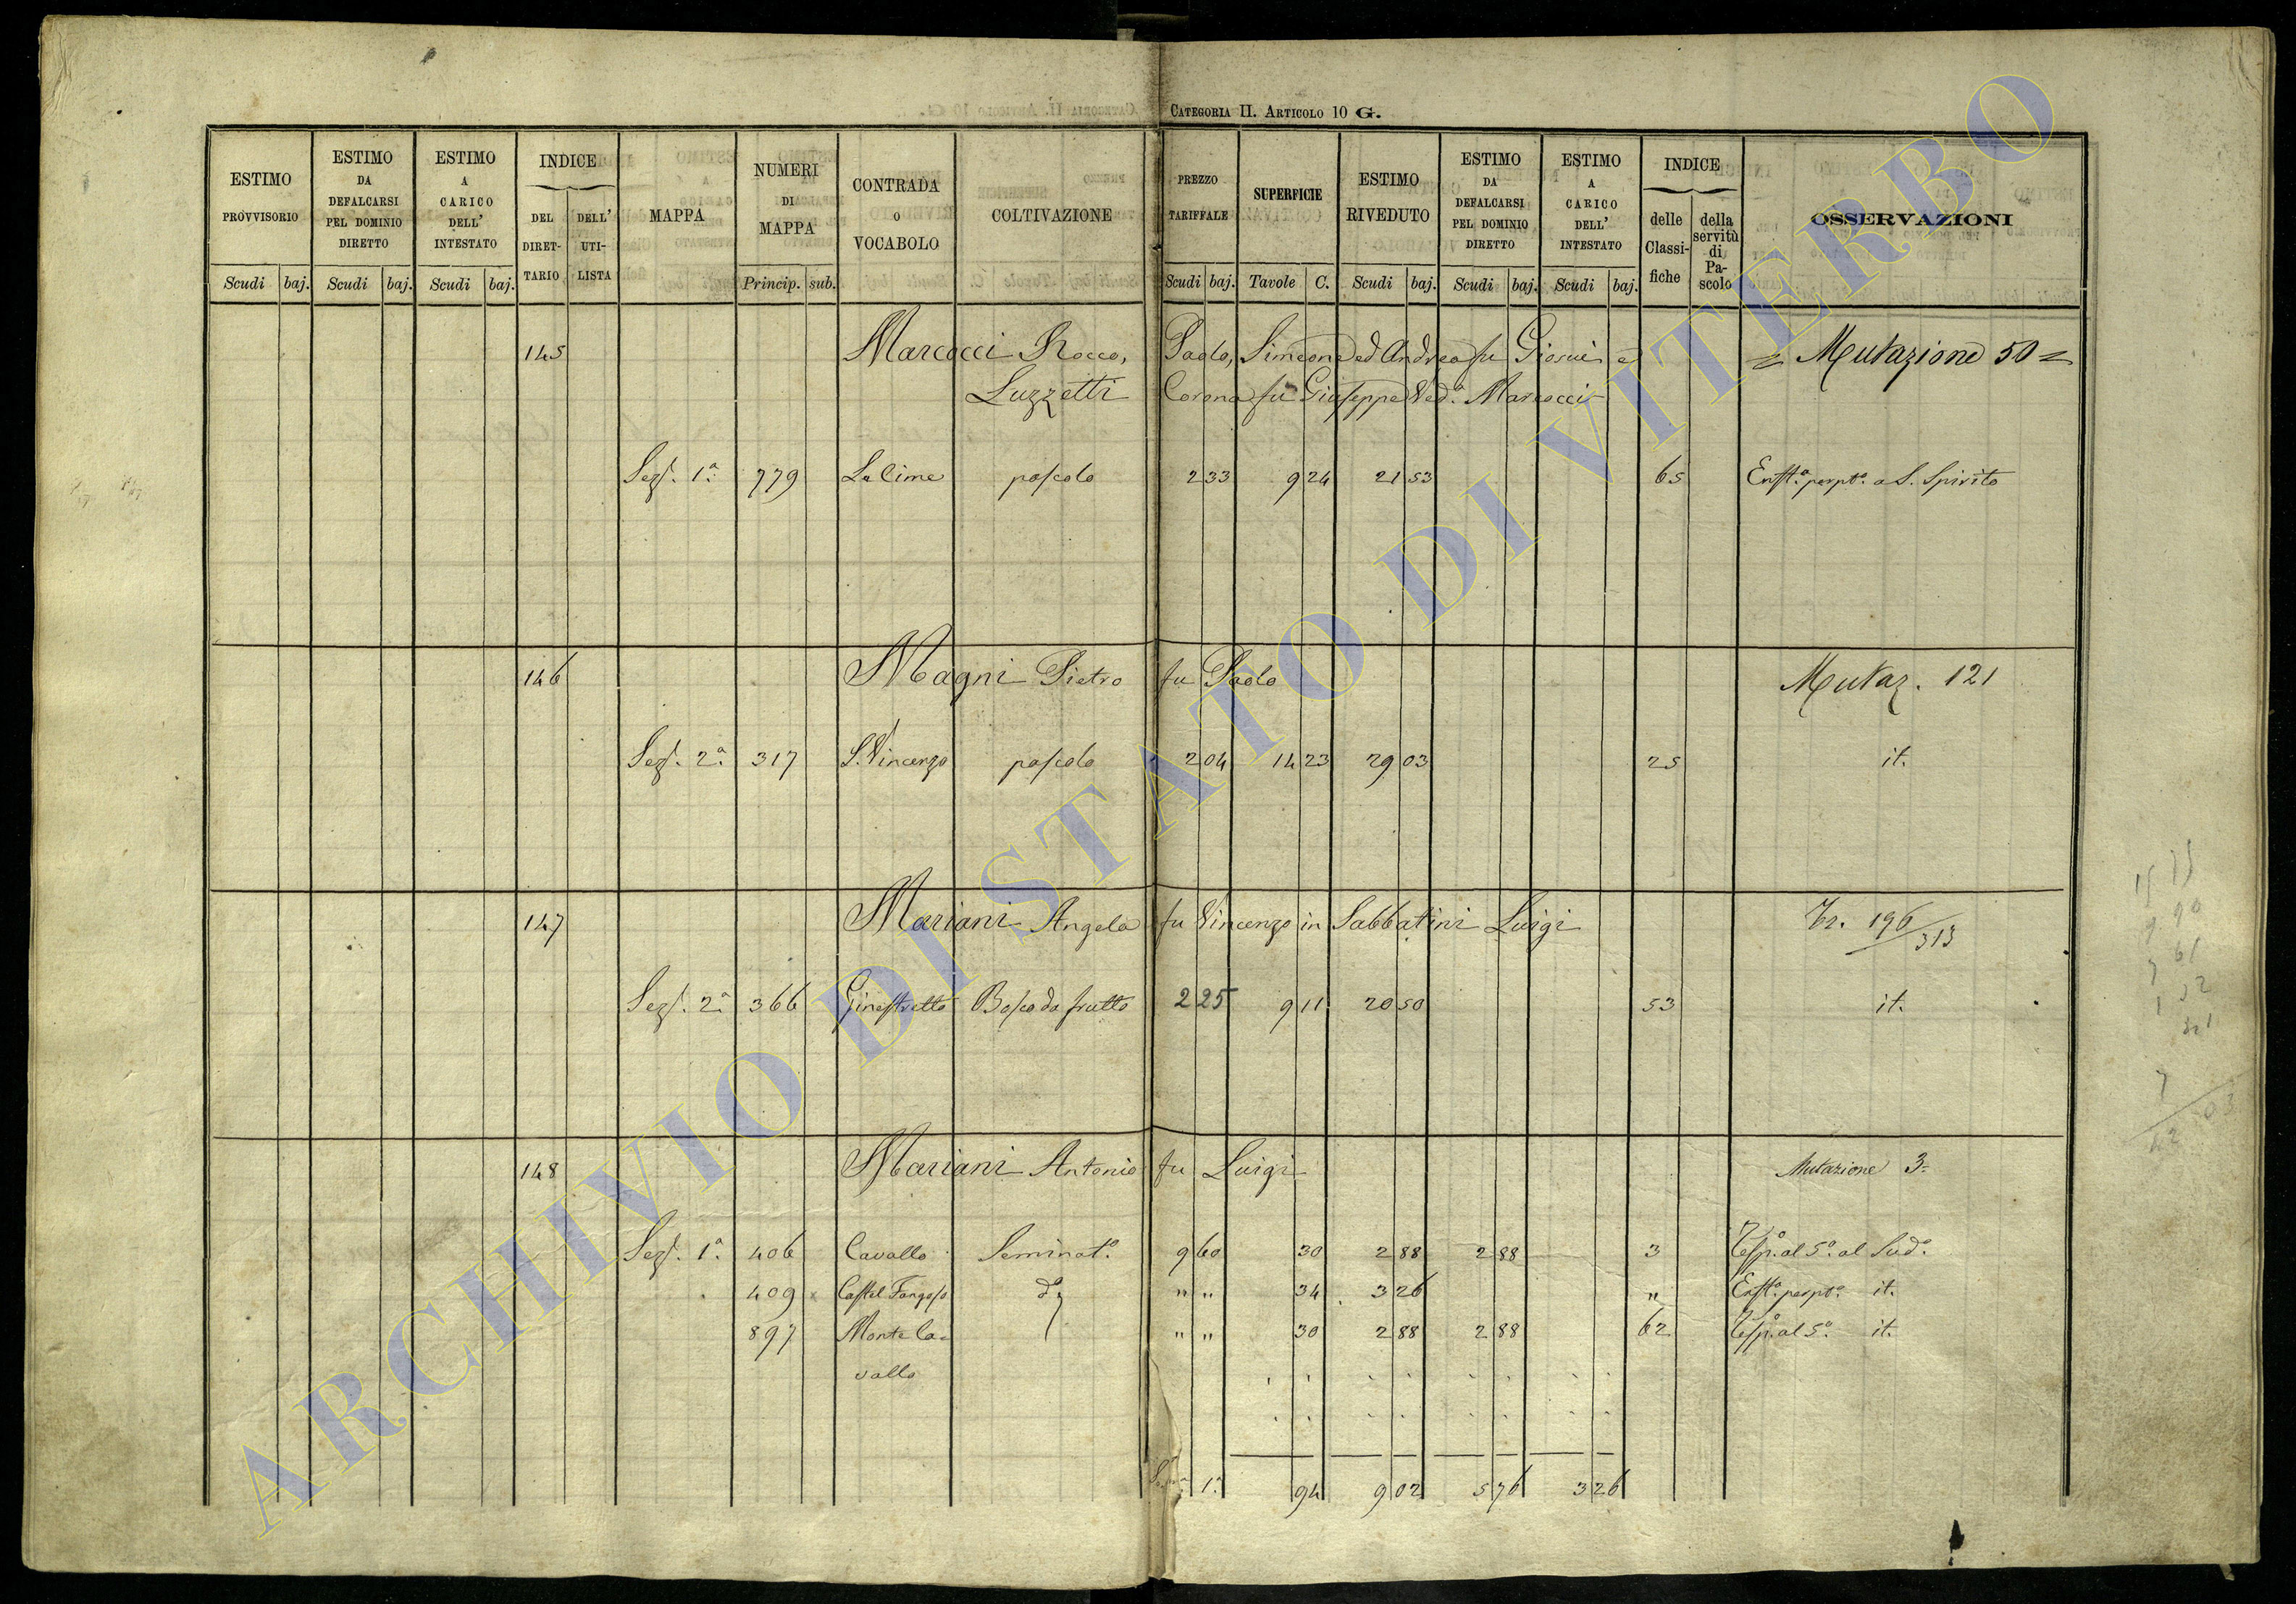 CATEGORIA II. ARTICOLO 10 G.
ESTIMO PROVVISORIO Scudi baj.
ESTIMO DA DEFALCARSI PEL DOMINIO DIRETTO Scudi baj.
ESTIMO A CARICO DELL' INTESTATO Scudi baj.
INDICE DEL DIRET-TARIO DELL' UTI-LISTA
MAPPA
NUMERI DI MAPPA Princip. sub.
CONTRADA O VOCABOLO
COLTIVAZIONE
PREZZO TARIFFALE Scudi baj.
SUPERFICIE Tavole C.
ESTIMO RIVEDUTO Scudi baj.
ESTIMO DA DEFALCARSI PEL DOMINIO DIRETTO Scudi baj.
ESTIMO A CARICO DELL' INTESTATO Scudi baj.
INDICE delle Classi-fiche della servitù di Pa-scolo
OSSERVAZIONI
145 Marcocci Rocco, Paolo, Simeone ed Andrea fu Giosuè e = Mutazione 50 =
Luzzetti Corona fu Giuseppe Ved.ª Marcocci
Sez. 1ª 779 Le Cime pascolo 2 33 9 24 21 53 65 Enft.ª perpt.ª a S. Spirito
146 Magni Pietro fu Paolo Mutaz. 121
Sez. 2ª 317 S. Vincenzo pascolo 2 04 14 23 29 03 25 it.
147 Mariani Angela fu Vincenzo in Sabbatini Luigi Tr. 196/313
Sez. 2ª 366 Ginestretto Bosco da frutto 2 25 9 11 20 50 53 it.
148 Mariani Antonio fu Luigi Mutazione 3=
Sez. 1ª 406 Cavallo Seminat.º 9 60 30 2 88 2 88 3 al 5º al Sud.º
409 Castel Fangoso dº " " 34 3 26 " Enft.ª perpt.ª it.
897 Monte Ca= " " 30 2 88 2 88 62 al 5º it.
vallo
1ª 94 9 02 5 76 3 26
ARCHIVIO DI STATO DI VITERBO